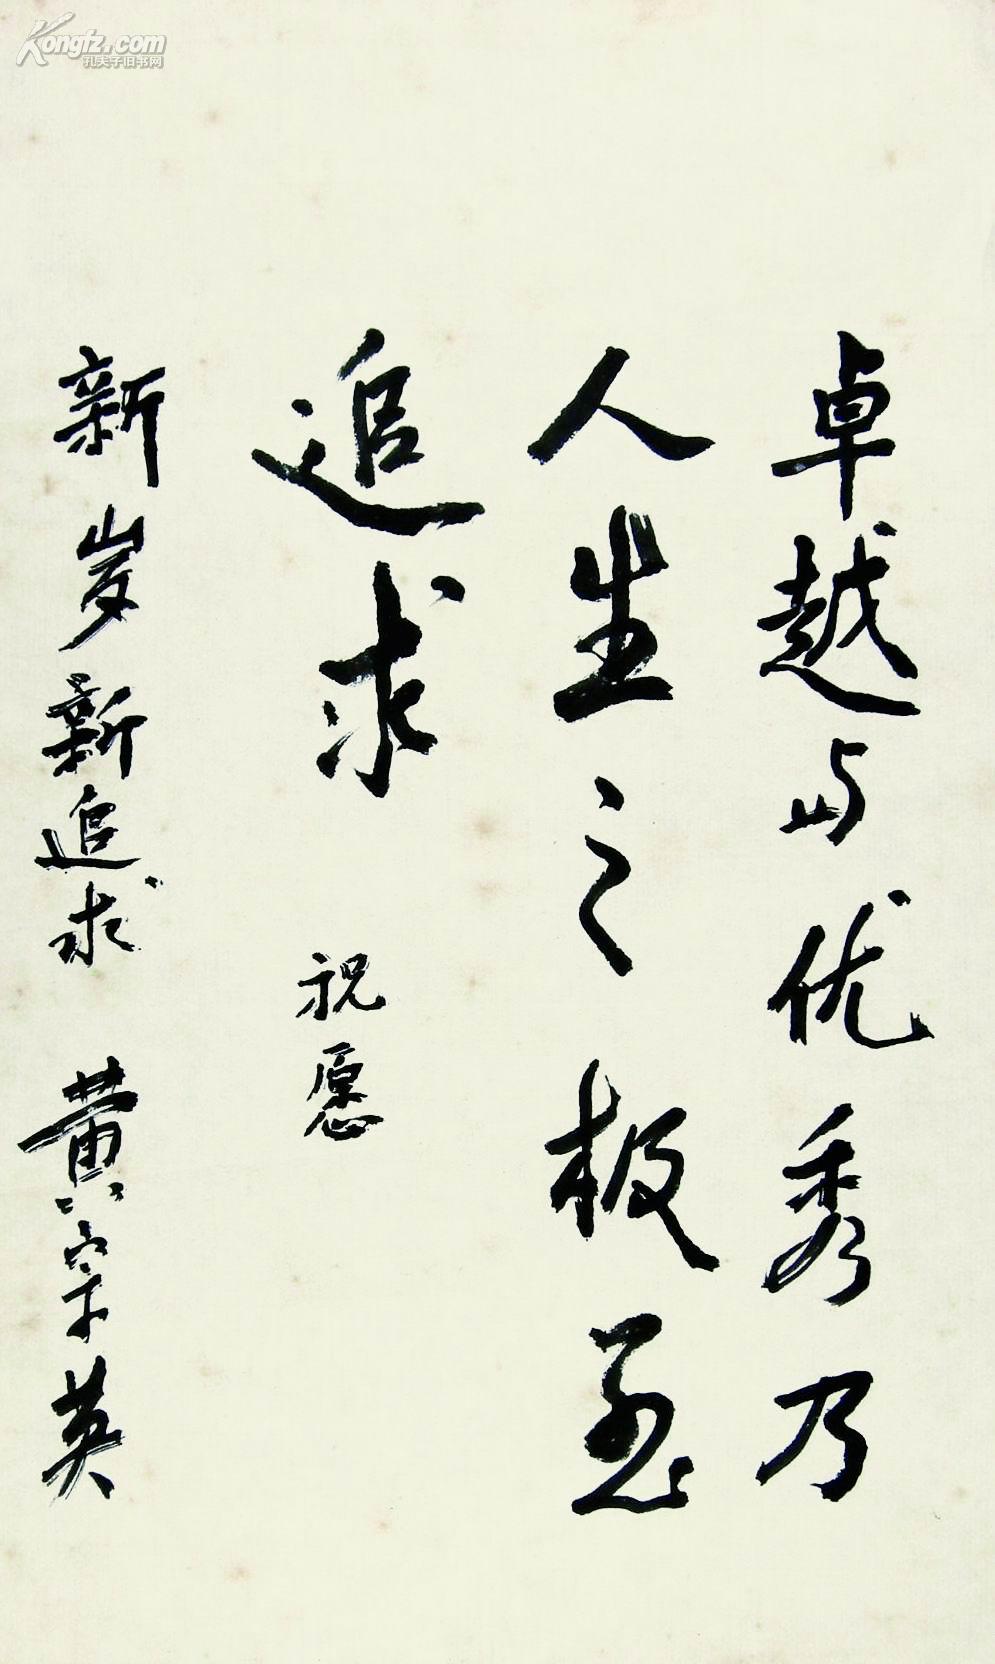 Kongfz.com
孔夫子旧书网
卓越与优秀乃
人生之极至
追求 祝愿
新岁新追求 黄宗英